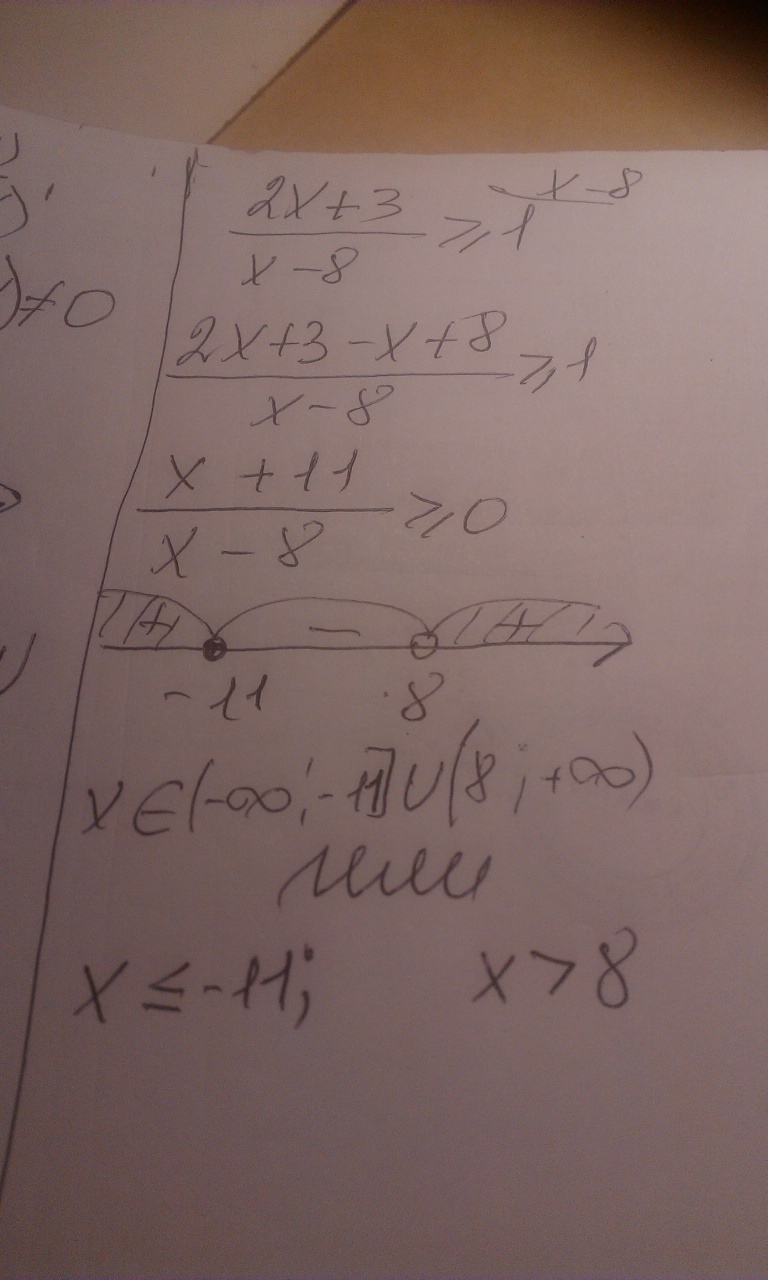 x-8
2x+3
x-8
⩾1
)≠0
2x+3-x+8
x-8
⩾1
x+11
x-8
⩾0
+ - +
-11 8
x∈(-∞;-11]∪(8;+∞)
или
x≤-11; x>8